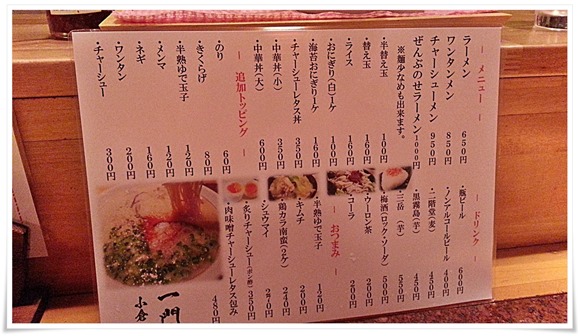 ― メニュー ―
ラーメン 650円
ワンタンメン 850円
チャーシューメン 950円
ぜんぶのせラーメン 1000円
※麺少なめも出来ます。
・半替え玉 100円
・替え玉 160円
・ライス 160円
・おにぎり(白)一ケ 100円
・海苔おにぎり一ケ 160円
・チャーシューレタス丼 350円
・中華丼(小) 350円
・中華丼(大) 600円
― 追加トッピング ―
・のり 60円
・きくらげ 80円
・半熟ゆで玉子 120円
・メンマ 120円
・ネギ 160円
・ワンタン 200円
・チャーシュー 300円
― ドリンク ―
・瓶ビール 600円
・ノンアルコールビール 400円
・二階堂(麦) 450円
・黒霧島(芋) 450円
・三岳(芋) 550円
・梅酒(ロック・ソーダ) 500円
・ウーロン茶 200円
・コーラ 200円
― おつまみ ―
・半熟ゆで玉子 120円
・キムチ 200円
・鶏カラ南蛮(2ケ) 240円
・シュウマイ
・炙りチャーシュー(ポン酢) 350円
・肉味噌チャーシューレタス包み 480円
一門
小倉